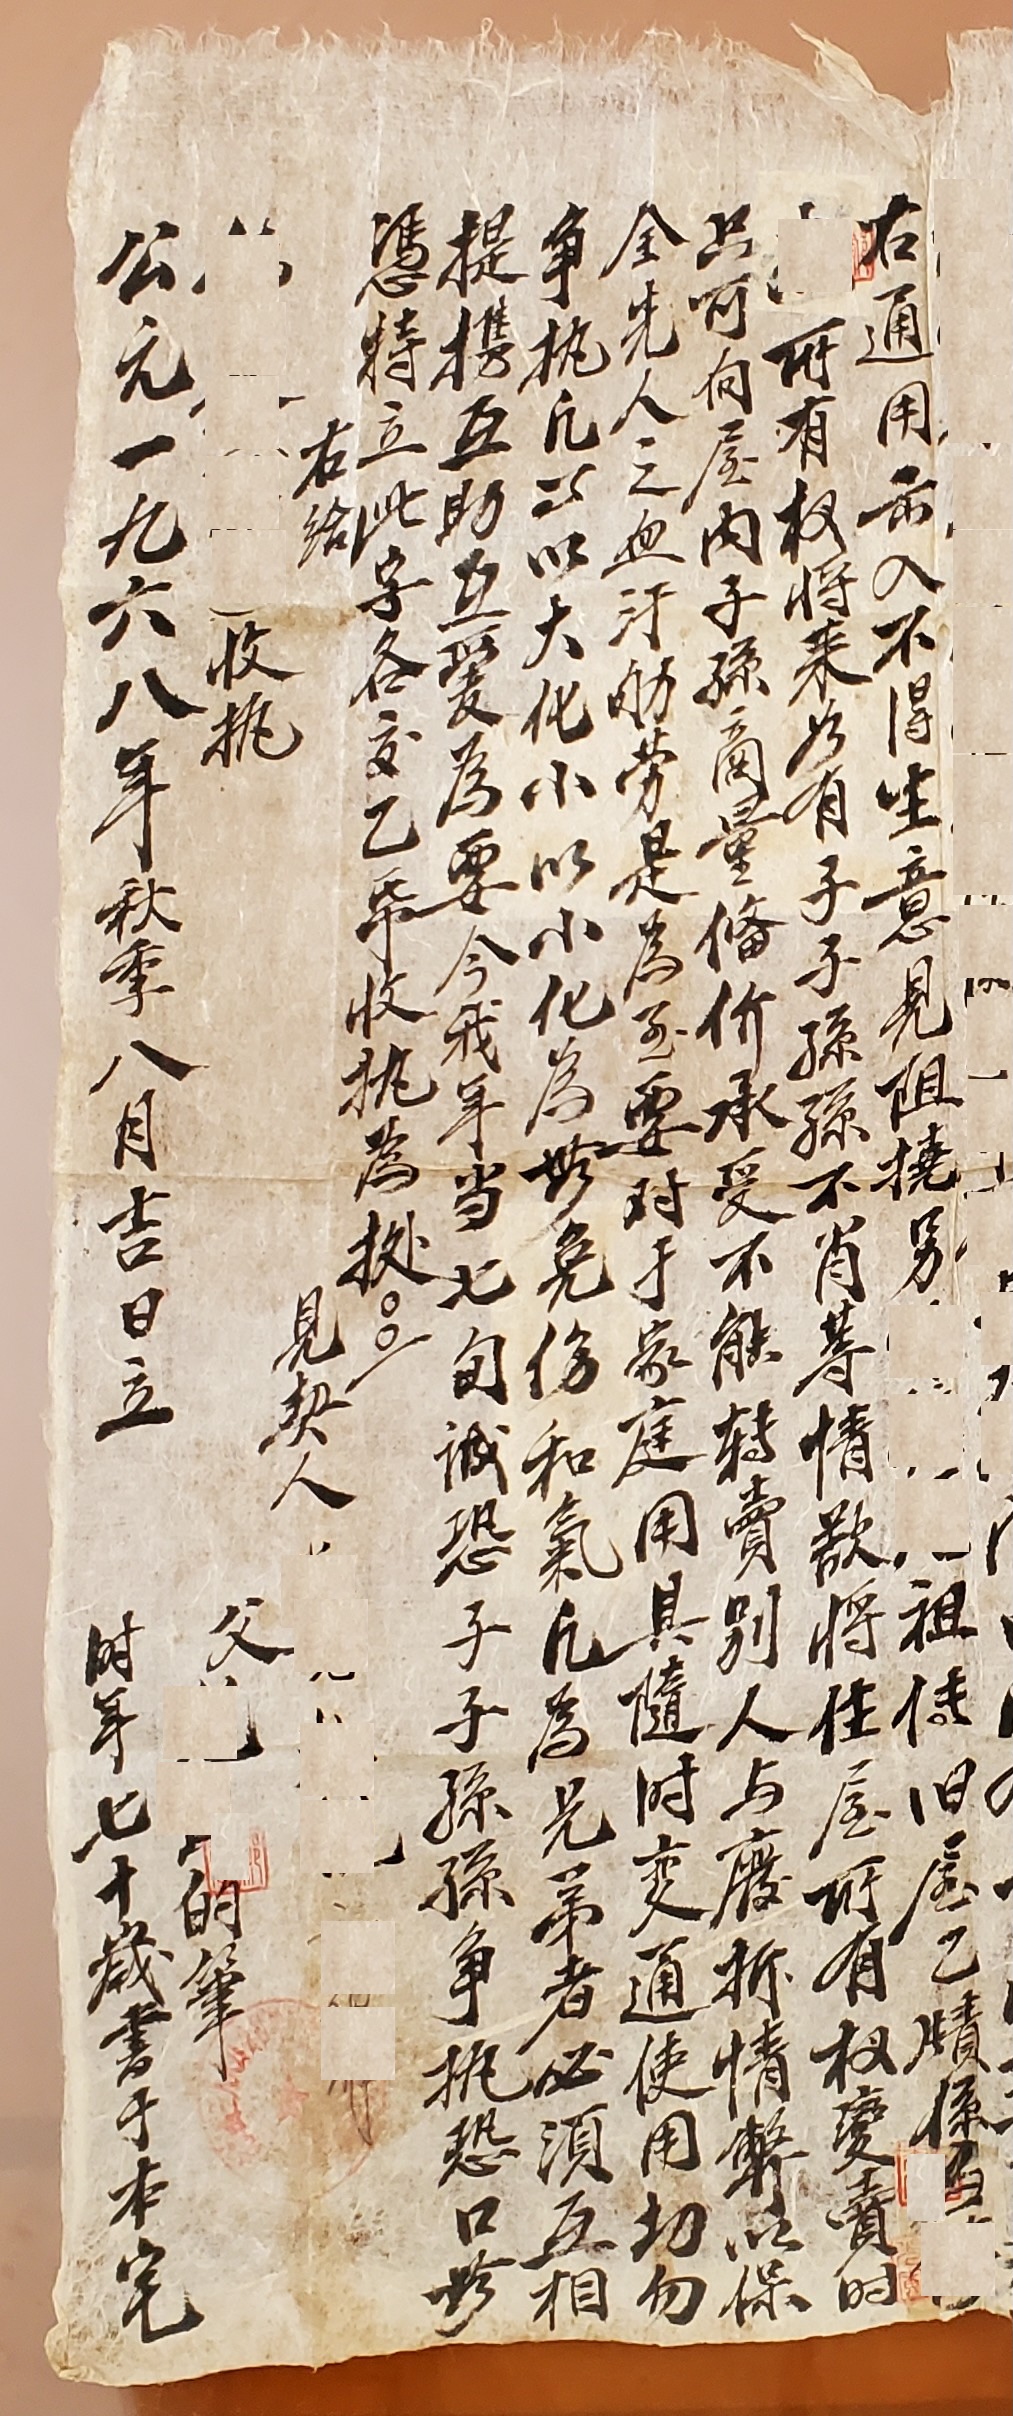 右通用出入不得生意見阻撓另 祖传旧屋乙牘係
所有权将来若有子子孫孫不肖等情欲将住屋所有权变賣时
只可向屋内子孫商量俻价承受不能转賣别人与废拆情弊以保
全先人之血汗劬劳是為至要对于家庭用具隨时变通使用切勿
争执凡以以大化小以小化為無免伤和氣凡為兄弟者必須互相
提携互助互爱為要今我年当七旬诚恐子子孫孫争执恐口無
憑特立此字各交乙帋收执為据
右给
見契人
收执
父 的筆
公元一九六八年秋季八月吉日立
时年七十歲書于本宅